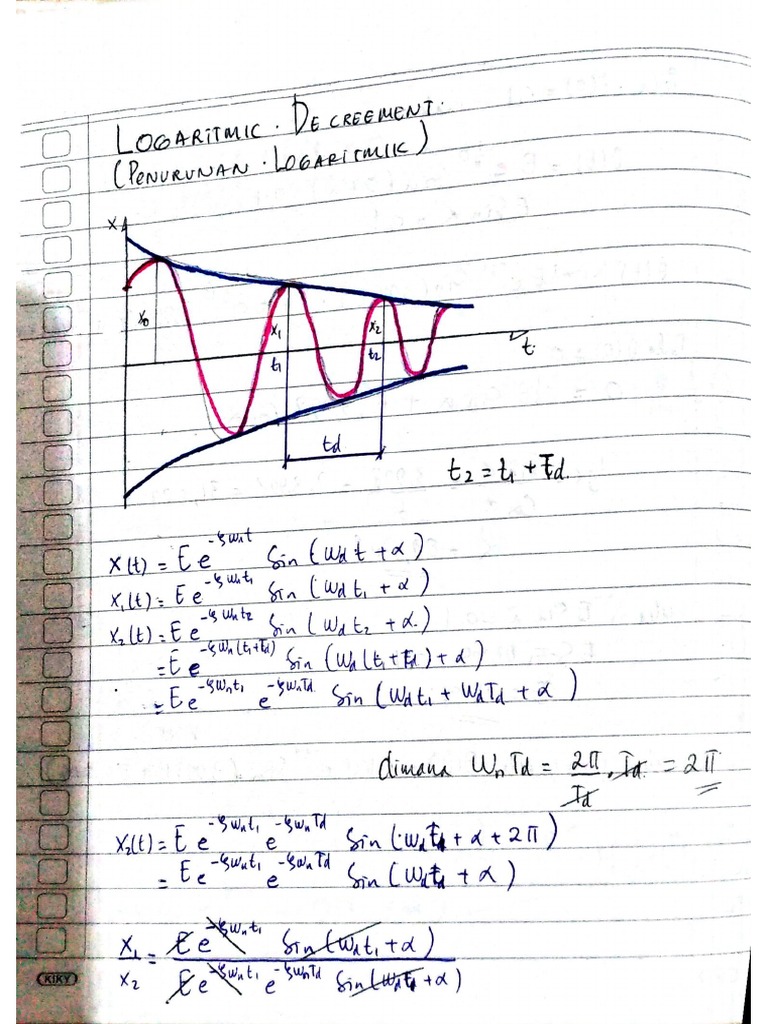 LOGARITMIC. DECREEMENT.
(PENURUNAN. LOGARITMIK)
x
x₀ x₁ x₂
t₁ t₂ t.
td
t₂ = t₁ + Td.
x(t) = E e^-ζωnt Sin (ωd t + α)
x₁(t) = E e^-ζωnt₁ Sin (ωd t₁ + α)
x₂(t) = E e^-ζωnt₂ Sin (ωd t₂ + α.)
= E e^-ζωn(t₁+Td) Sin (ωd (t₁ + Td) + α)
= E e^-ζωnt₁ e^-ζωnTd Sin (ωd t₁ + ωd Td + α)
dimana ωn Td = 2π/Td . Td = 2π
x₂(t) = E e^-ζωnt₁ e^-ζωnTd Sin (ωd + α + 2π)
= E e^-ζωnt₁ e^-ζωnTd Sin (ωd + α)
x₁/x₂ = E e^-ζωnt₁ Sin (ωd t₁ + α) / E e^-ζωnt₁ e^-ζωnTd Sin (ωd + α)
KIKY